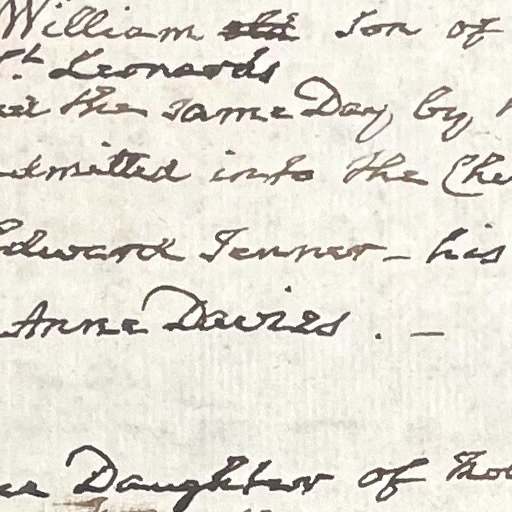 William the Son of
St. Leonards
the same Day, by
admitted into the Che
Edward Jenner - his
Anne Davies . -
Daughter of Tho